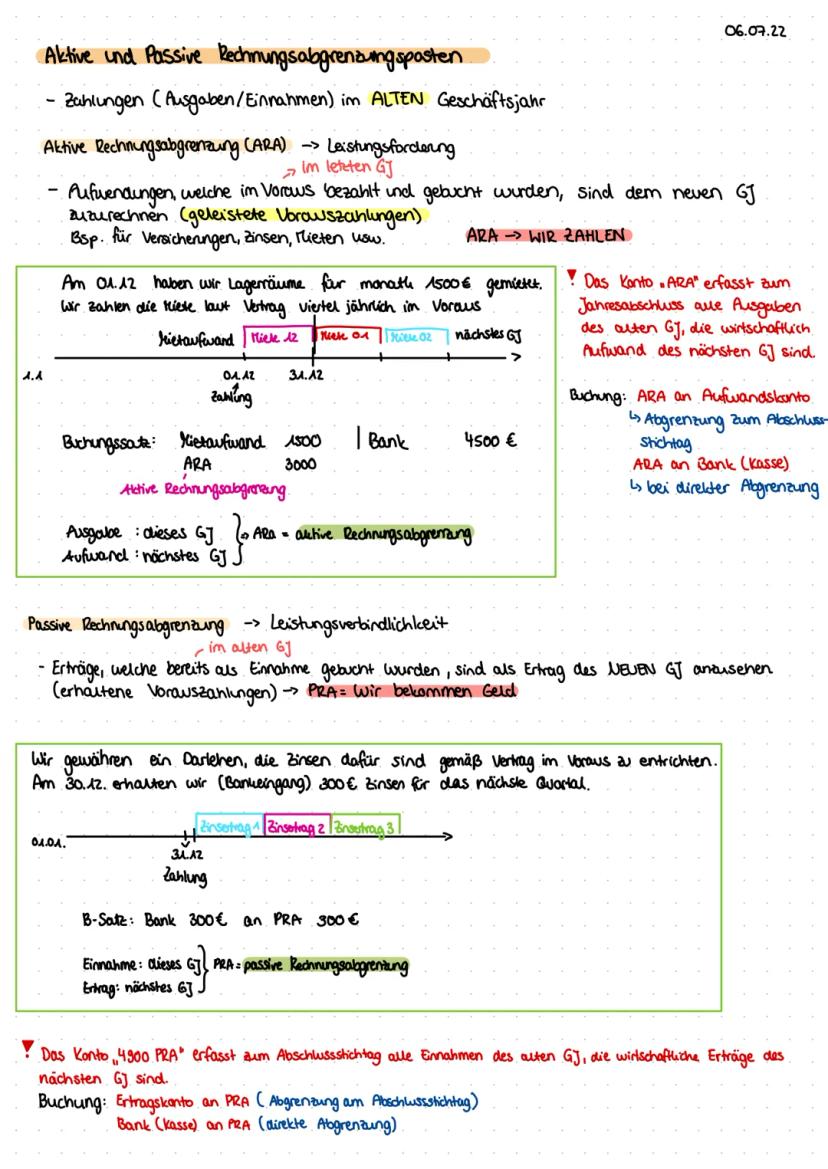 06.07.22
Aktive und Passive Rechnungsabgrenzungsposten
- Zahlungen (Ausgaben/Einnahmen) im ALTEN Geschäftsjahr
Aktive Rechnungsabgrenzung (ARA) -> Leistungsforderung
im letzten GJ
- Aufwendungen, welche im Voraus bezahlt und gebucht wurden, sind dem neuen GJ
zuzurechnen (geleistete Vorauszahlungen)
Bsp. für Versicherungen, Zinsen, Mieten usw. ARA -> WIR ZAHLEN
Am 01.12 haben wir Lagerräume für monatl. 1500€ gemietet.
Wir zahlen die Miete laut Vertrag vierteljährlich im Voraus
Mietaufwand Miete 12 Miete 01 Miete 02 nächstes GJ
1.1 01.12 31.12
Zahlung
Buchungssatz: Mietaufwand 1500 | Bank 4500 €
ARA 3000
Aktive Rechnungsabgrenzung
Ausgabe : dieses GJ
Aufwand : nächstes GJ
ARA = aktive Rechnungsabgrenzung
! Das Konto „ARA" erfasst zum
Jahresabschluss alle Ausgaben
des alten GJ, die wirtschaftlich
Aufwand des nächsten GJ sind.
Buchung: ARA an Aufwandskonto
↳ Abgrenzung zum Abschluss-
stichtag
ARA an Bank (Kasse)
↳ bei direkter Abgrenzung
Passive Rechnungsabgrenzung -> Leistungsverbindlichkeit
im alten GJ
- Erträge, welche bereits als Einnahme gebucht wurden, sind als Ertrag des NEUEN GJ anzusehen
(erhaltene Vorauszahlungen) -> PRA = Wir bekommen Geld
Wir gewähren ein Darlehen, die Zinsen dafür sind gemäß Vertrag im Voraus zu entrichten.
Am 30.12. erhalten wir (Bankeingang) 300€ Zinsen für das nächste Quartal.
Zinsertrag 1 Zinsertrag 2 Zinsertrag 3
01.01.
31.12
Zahlung
B-Satz: Bank 300€ an PRA 300€
Einnahme: dieses GJ
Ertrag: nächstes GJ
PRA = passive Rechnungsabgrenzung
! Das Konto „4900 PRA" erfasst zum Abschlussstichtag alle Einnahmen des alten GJ, die wirtschaftliche Erträge des
nächsten GJ sind.
Buchung: Ertragskonto an PRA (Abgrenzung am Abschlussstichtag)
Bank (Kasse) an PRA (direkte Abgrenzung)